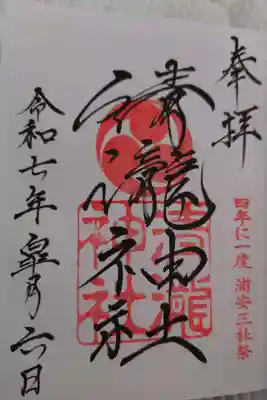 奉拝
四年に一度 浦安三社祭
清瀧神社
清瀧神社
令和七年皐月六日